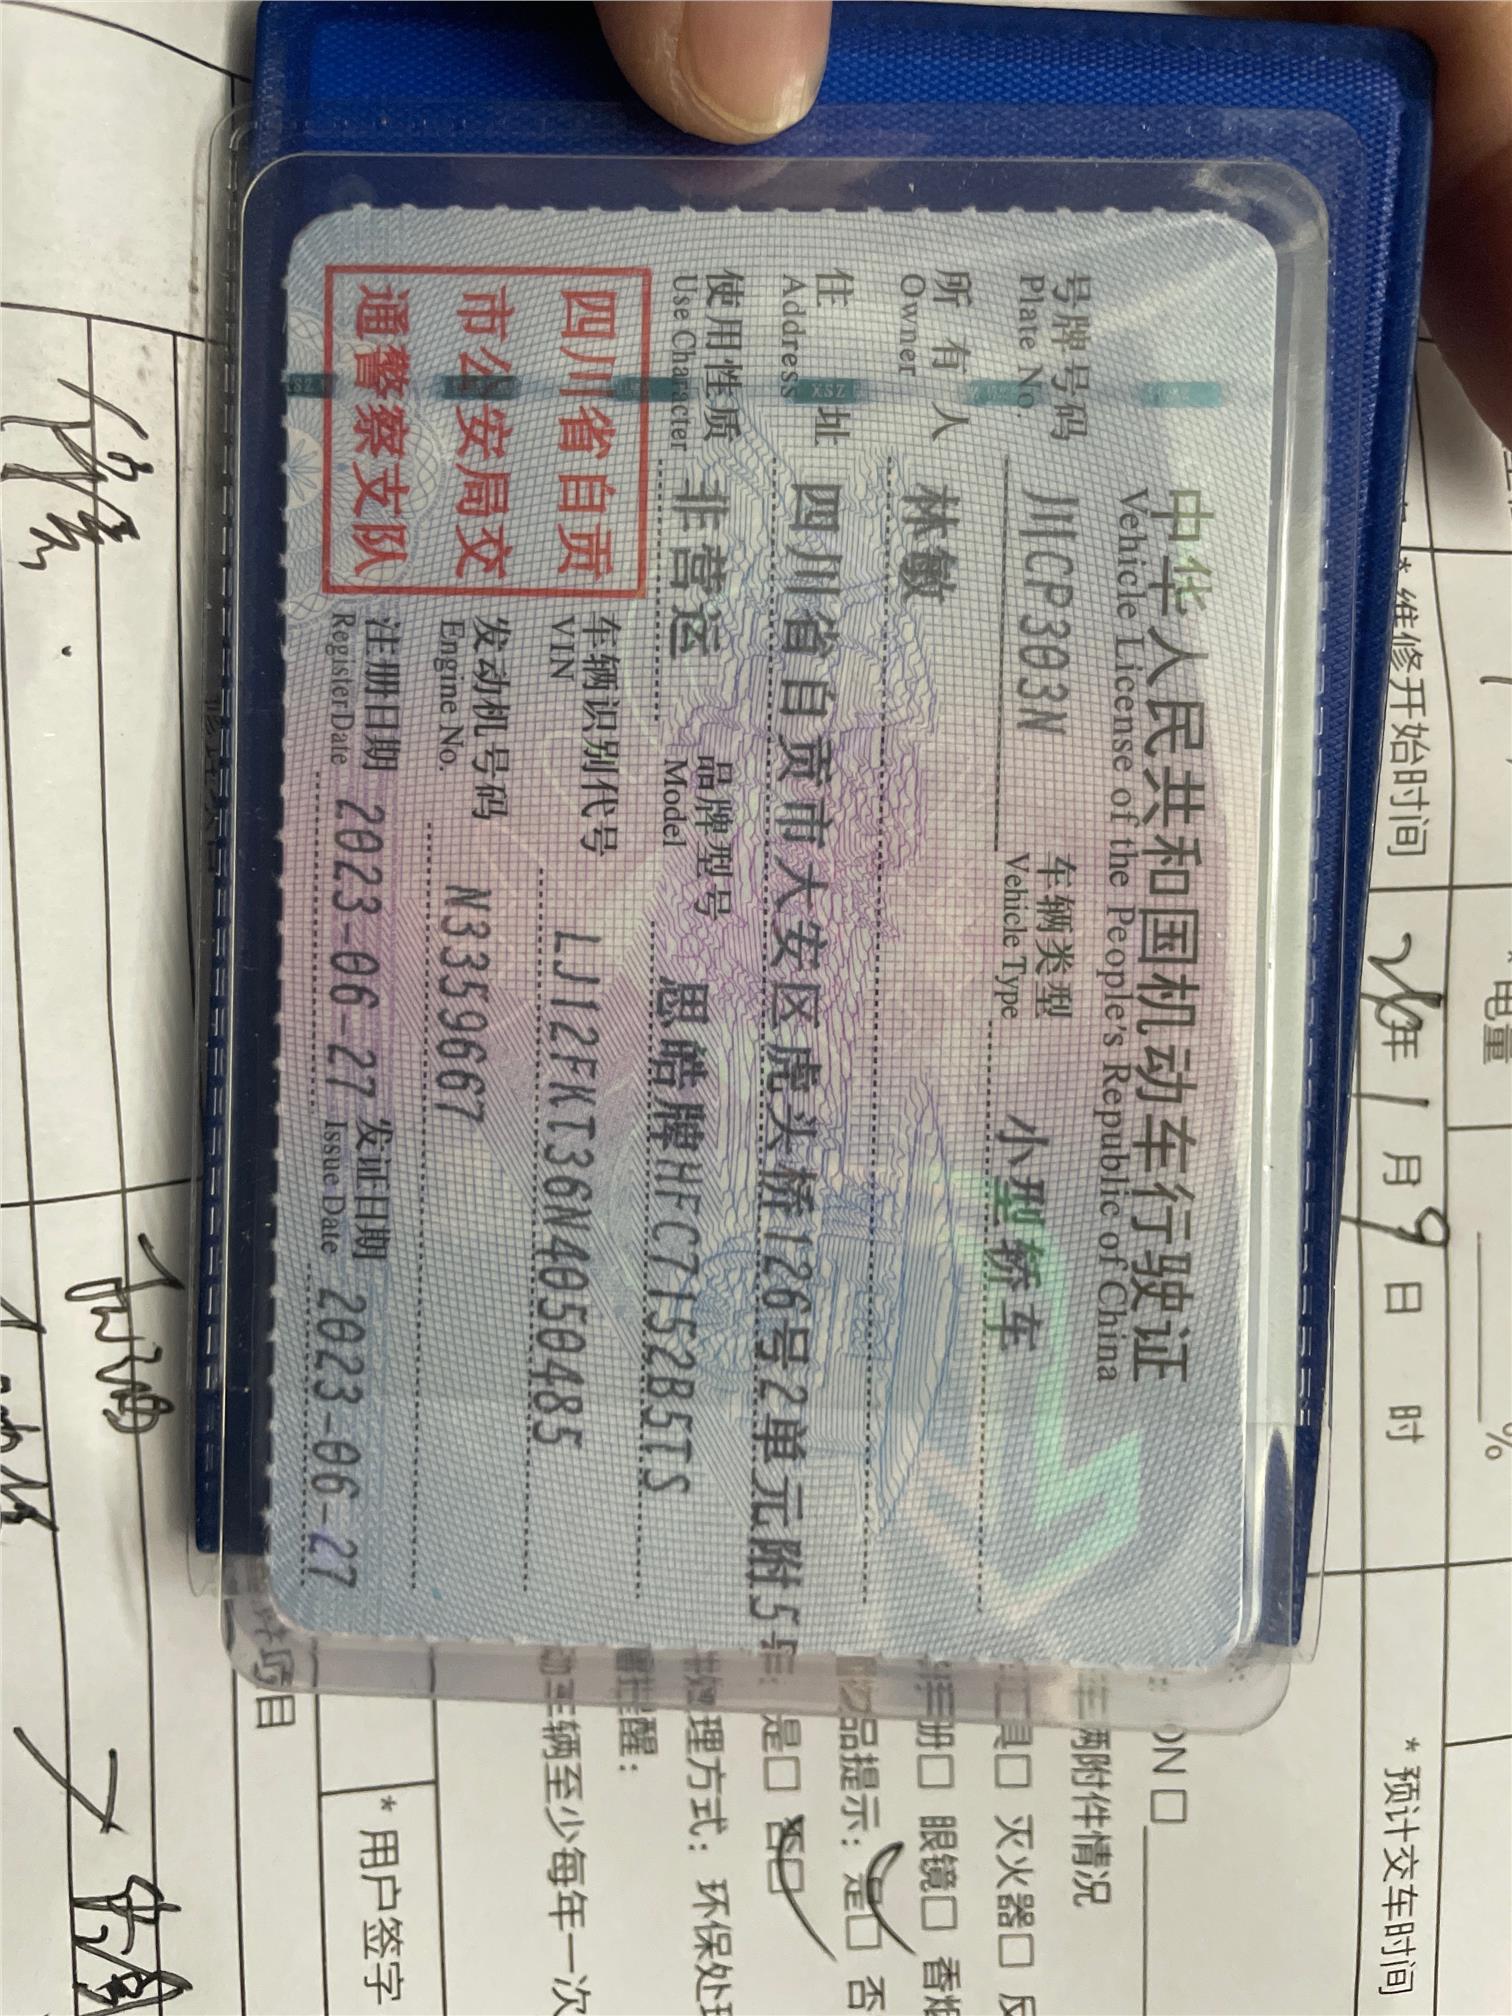 中华人民共和国机动车行驶证
Vehicle License of the People's Republic of China
号牌号码 川CP303N 车辆类型 小型轿车
Plate No. Vehicle Type
所有人 林敏
Owner
住址 四川省自贡市大安区虎头桥126号2单元附5号
Address
使用性质 非营运 品牌型号 思皓牌HFC7152B5TS
Use Character Model
四川省自贡
市公安局交
通警察支队
车辆识别代号 LJ12FKT36N4050485
VIN
发动机号码 N3359667
Engine No.
注册日期 2023-06-27 发证日期 2023-06-27
Register Date Issue Date
*电量 %
*维修开始时间 年1月9日 时
*预计交车时间
ON□
车辆附件情况
工具□ 灭火器□
册□ 眼镜□ 香烟
物品提示：是□ 否
是□ 否□
处理方式： 环保处理
醒：
辆至少每年一次
*用户签字
项目